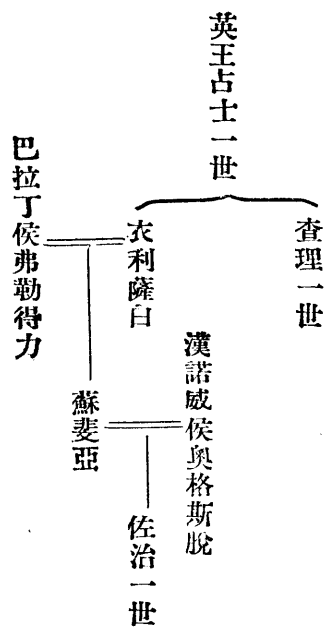 英王占士一世
查理一世
衣利薩白
巴拉丁侯弗勒得力
漢諾威侯奧格斯脫
蘇斐亞
佐治一世